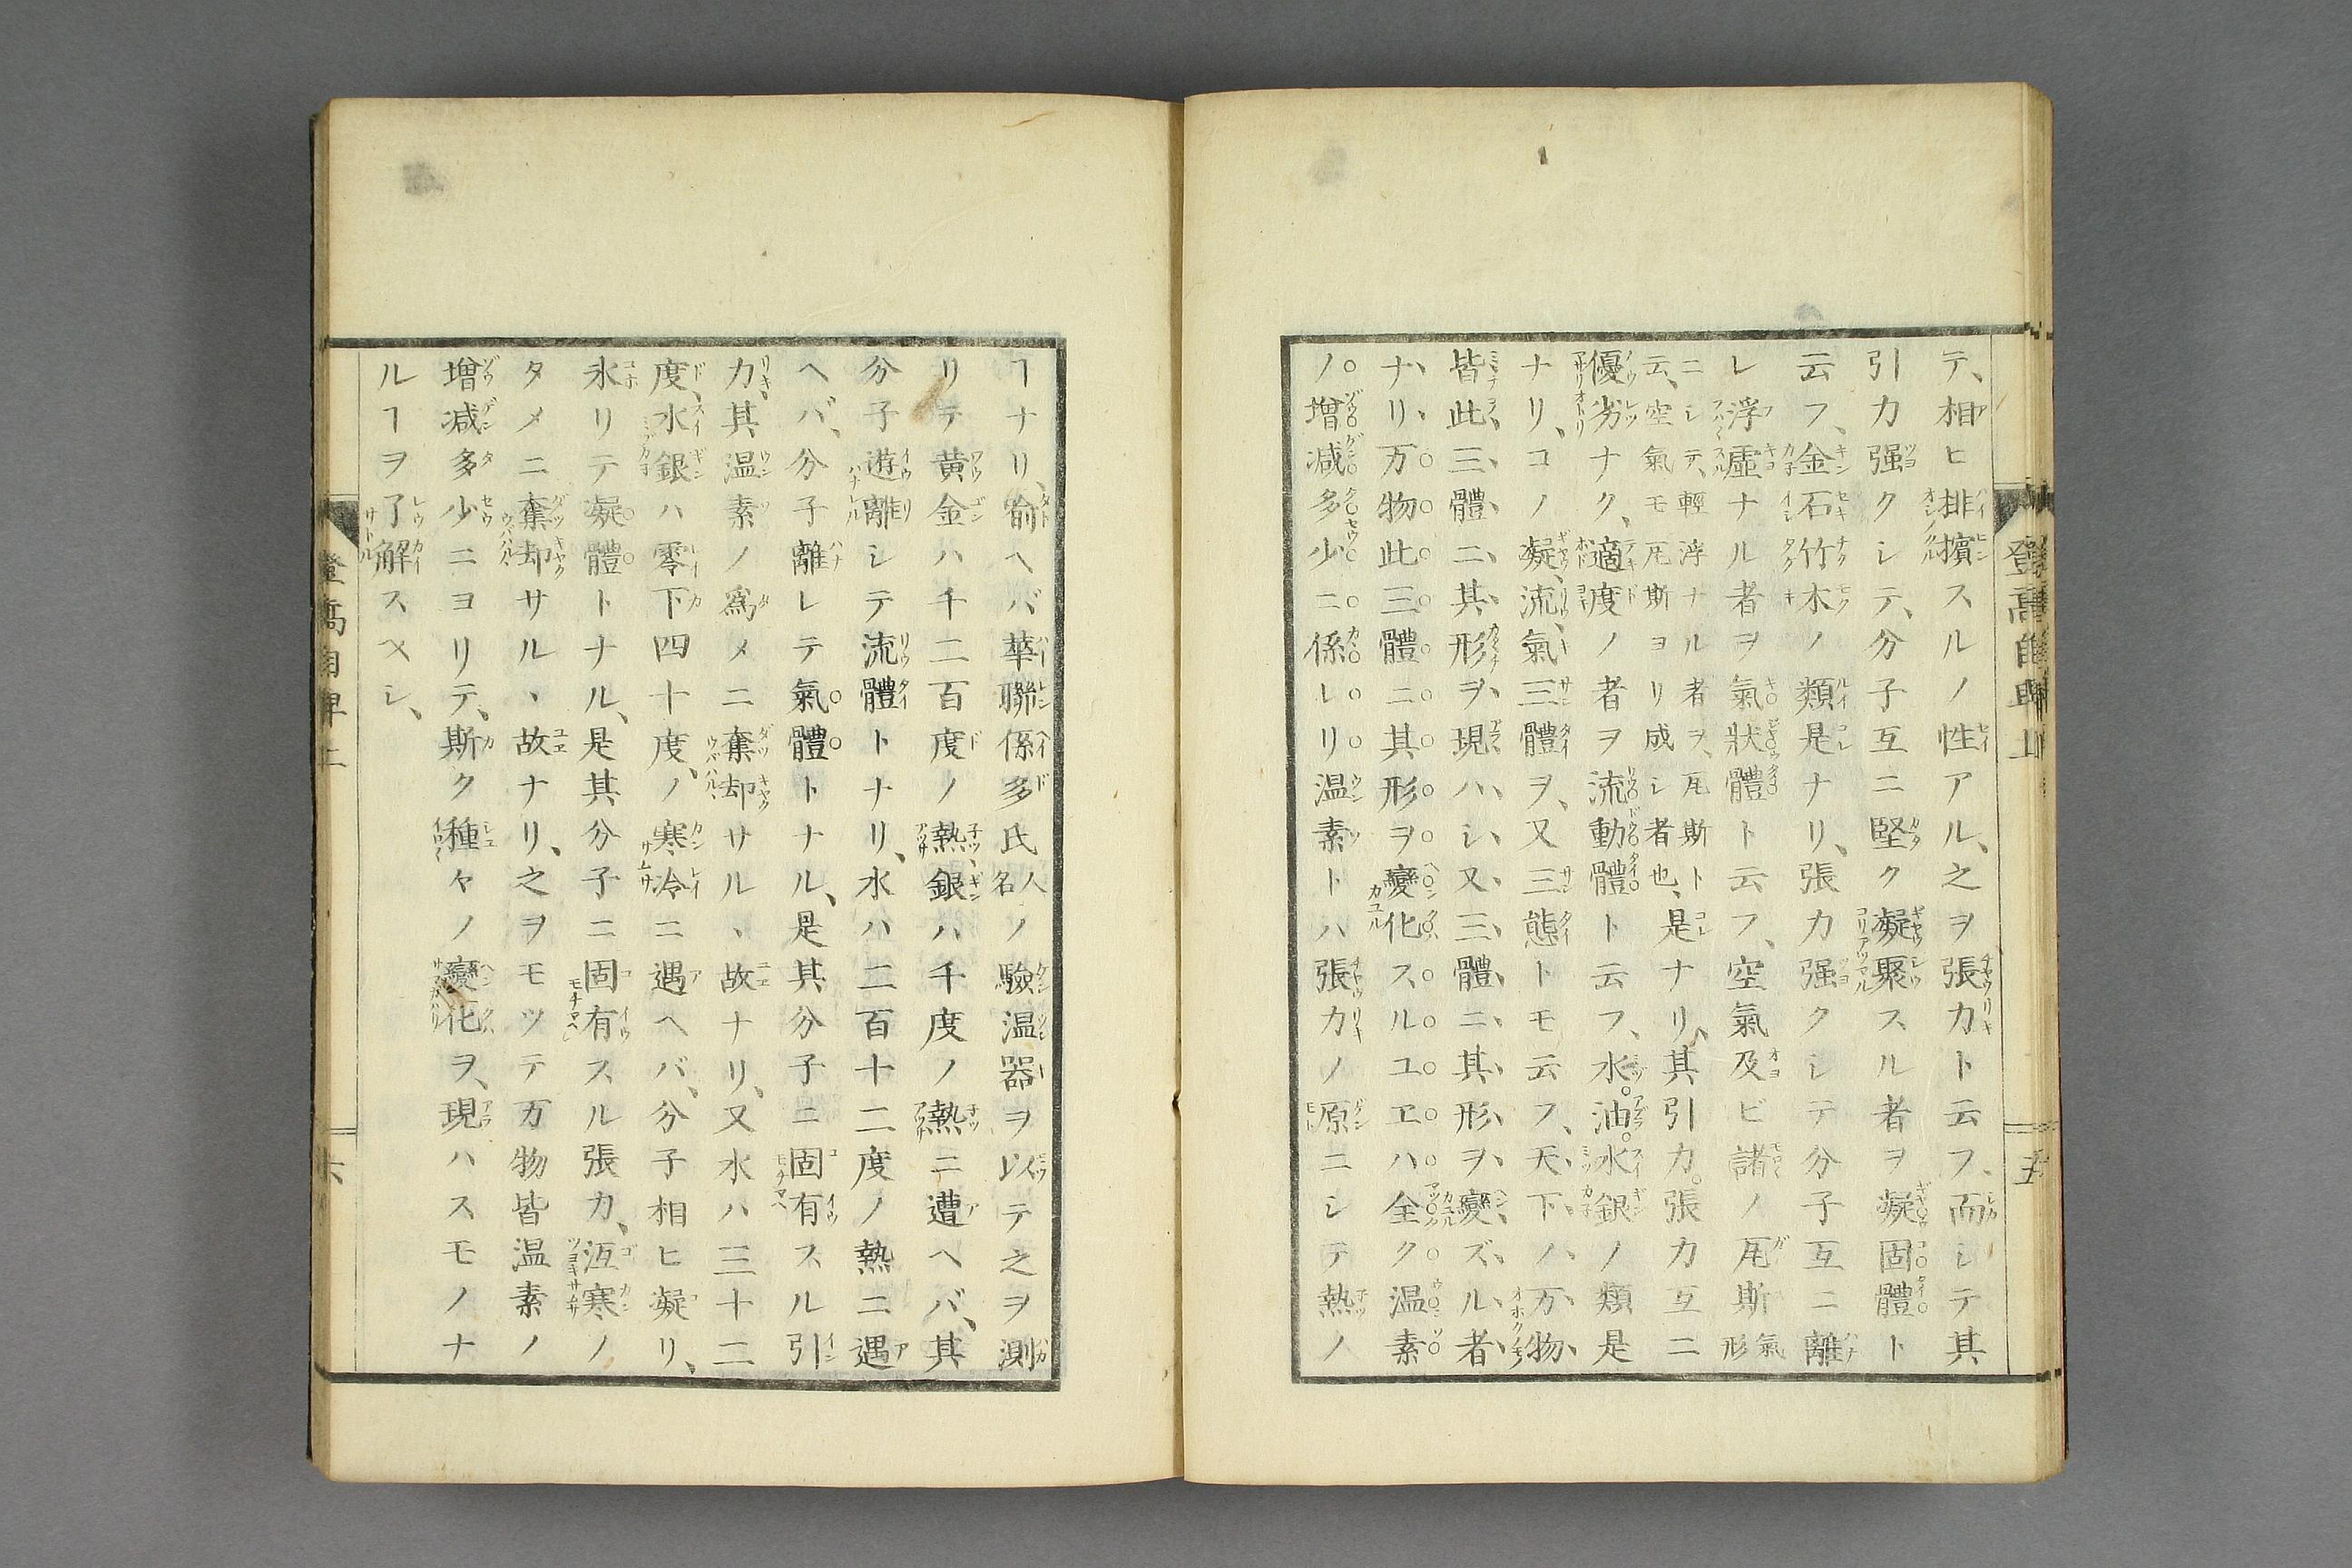 テ、相ヒ排擯スルノ性アル、之ヲ張力ト云フ、而シテ其
引力强クシテ、分子互ニ堅ク凝聚スル者ヲ凝固體ト
云フ、金石竹木ノ類是ナリ、張力强クシテ分子互ニ離
レ浮虛ナル者ヲ氣狀體ト云フ、空氣及ビ諸ノ瓦斯氣形
ニシテ、輕浮ナル者ヲ、瓦斯ト
云、空氣モ瓦斯ヨリ成シ者也、是ナリ、其引力。張力互ニ
優劣ナク、適度ノ者ヲ流動體ト云フ、水。油。水銀ノ類是
ナリ、コノ凝流氣三體ヲ、又三態トモ云フ、天下ノ万物、
皆此三體ニ其形ヲ現ハシ又三體ニ其形ヲ變ズル者
ナリ、万物此三體ニ其形ヲ變化スルユヱハ全ク温素
ノ増减多少ニ係レリ温素トハ張力ノ原ニシテ熱ノ
登高自卑 上
五
ヿナリ、喻ヘバ華聯係多氏人名ノ驗温器ヲ以テ之ヲ測
リテ黄金ハ千二百度ノ熱、銀ハ千度ノ熱ニ遭ヘバ、其
分子遊離シテ流體トナリ、水ハ二百十二度ノ熱ニ遇
ヘバ、分子離レテ氣體トナル、是其分子ニ固有スル引
力、其温素ノ爲メニ奪却サルヽ故ナリ、又水ハ三十二
度、水銀ハ零下四十度、ノ寒冷ニ遇ヘバ、分子相ヒ凝リ、
氷リテ凝體トナル、是其分子ニ固有スル張力、沍寒ノ
タメニ奪却サルヽ故ナリ、之ヲモツテ万物皆温素ノ
増减多少ニヨリテ、斯ク種々ノ變化ヲ、現ハスモノナ
ルヿヲ了解スベシ、
登高自卑 上
六